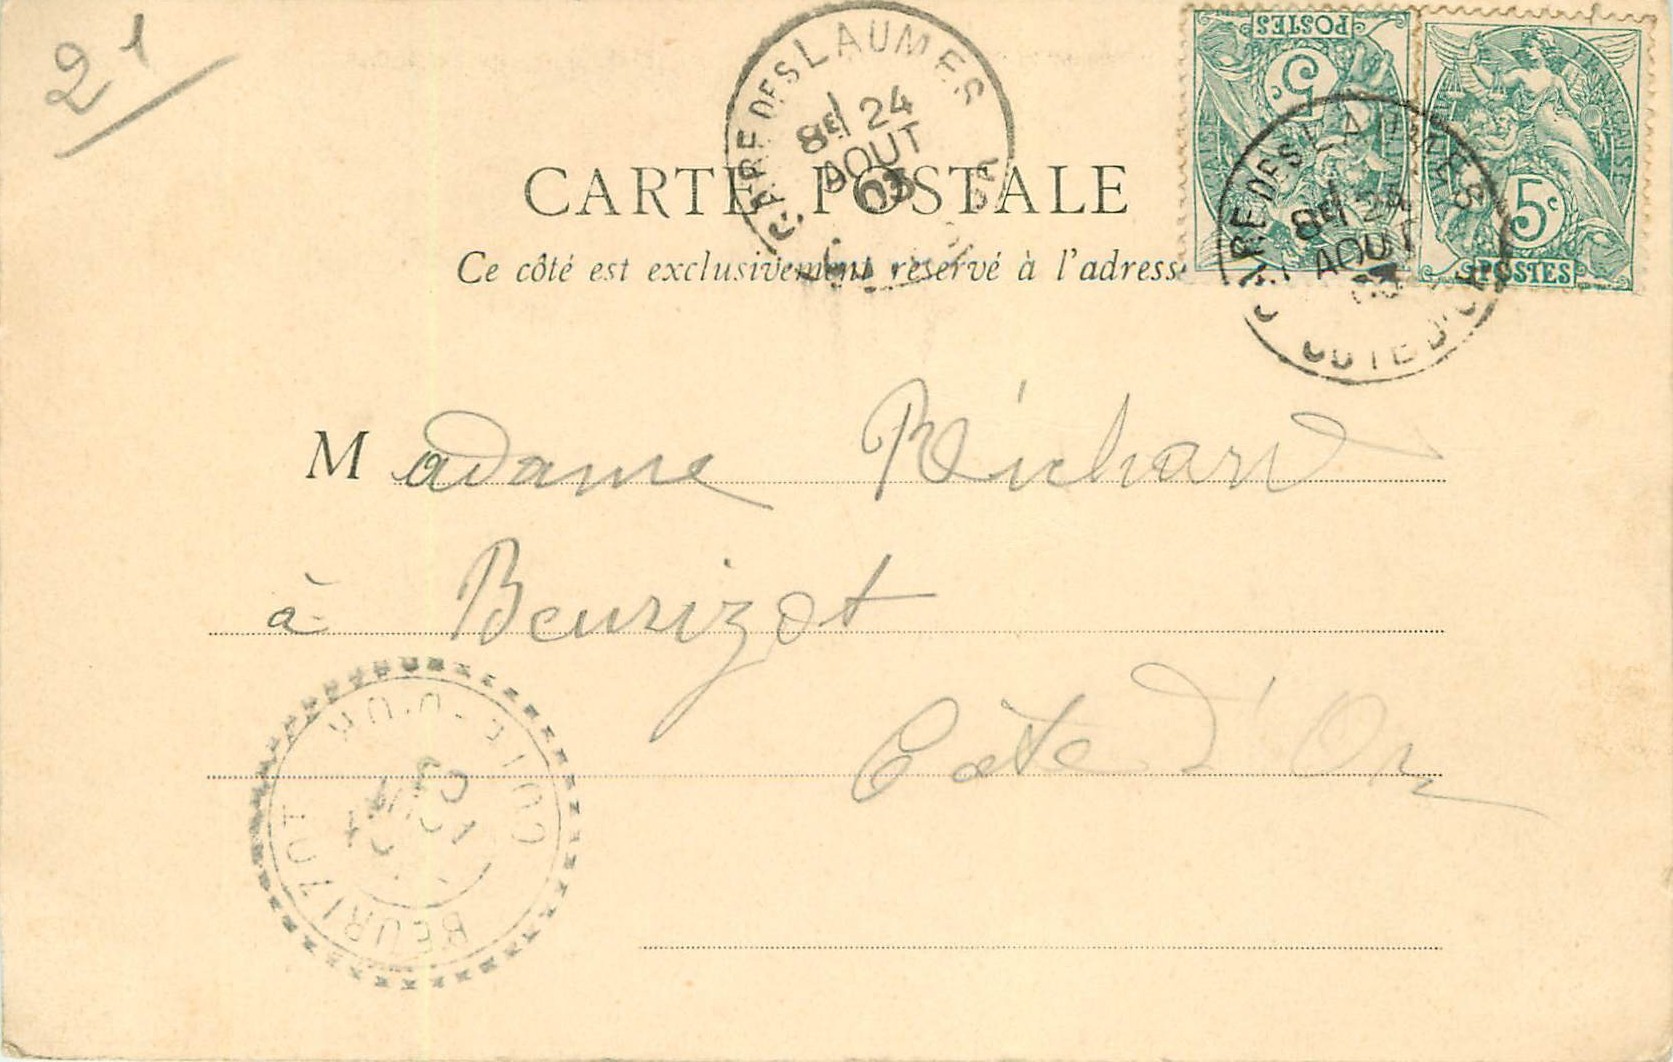 21
GARE DES LAUMES
8E 24
AOUT
03
POSTES
5
RÉPUBLIQUE FRANÇAISE
5c
POSTES
GARE DES LAUMES
8E 24
AOUT
03
COTE D'OR
CARTE POSTALE
Ce côté est exclusivement réservé à l'adresse
Madame Richard
à Beurizot
Côte d'Or
BEURIZOT
COTE-D'OR